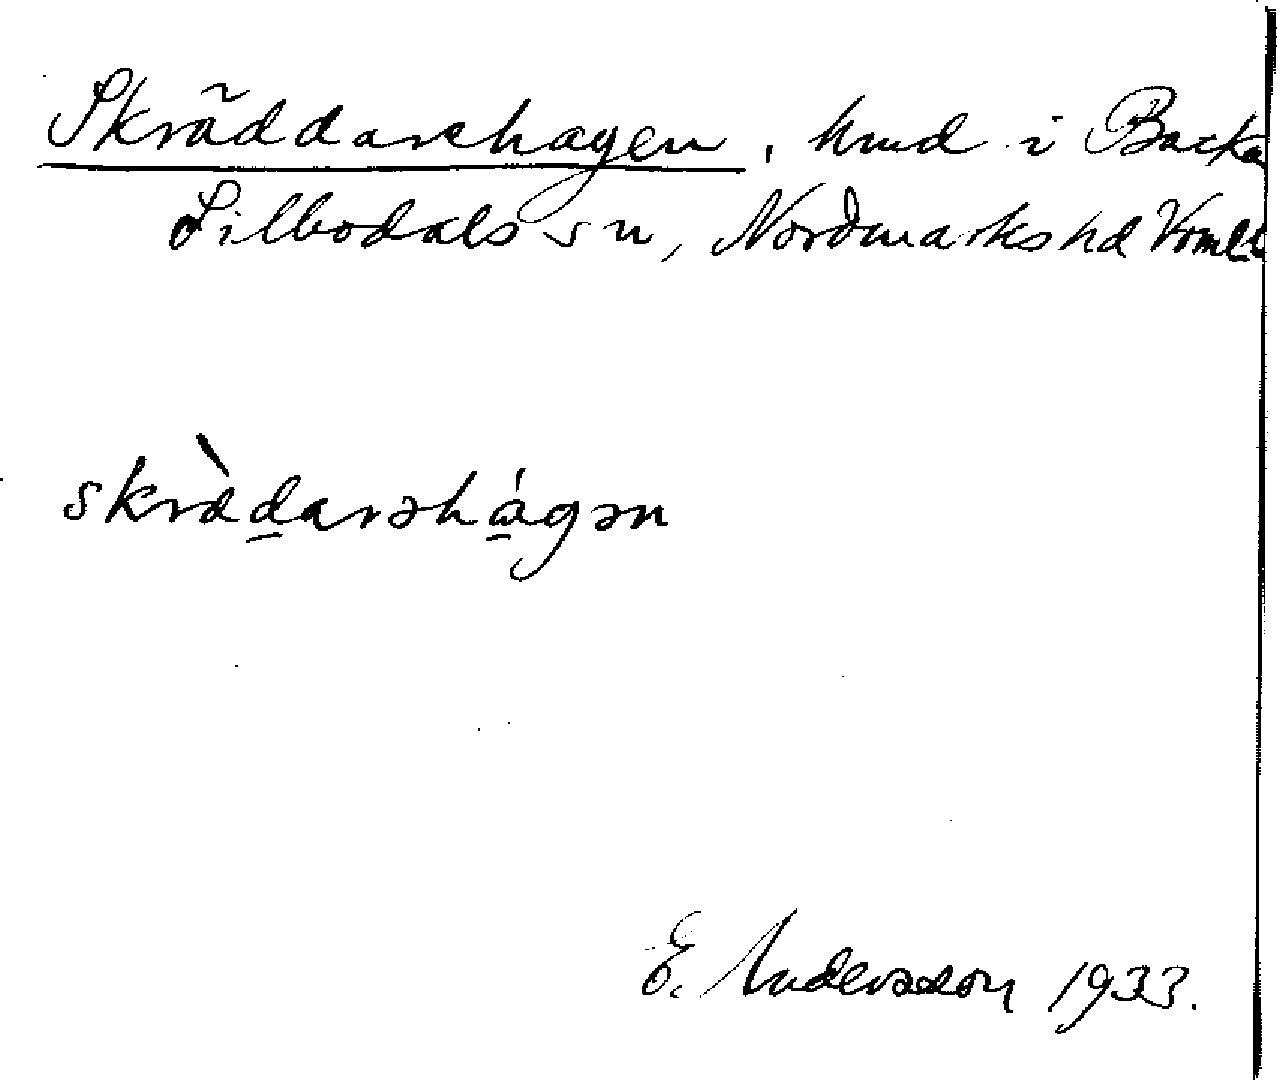 Skräddarehagen, hmd i Backa
Silbodals sn, Nordmarks hd Vrml
skrädarəhágən
E. Andersson 1933.